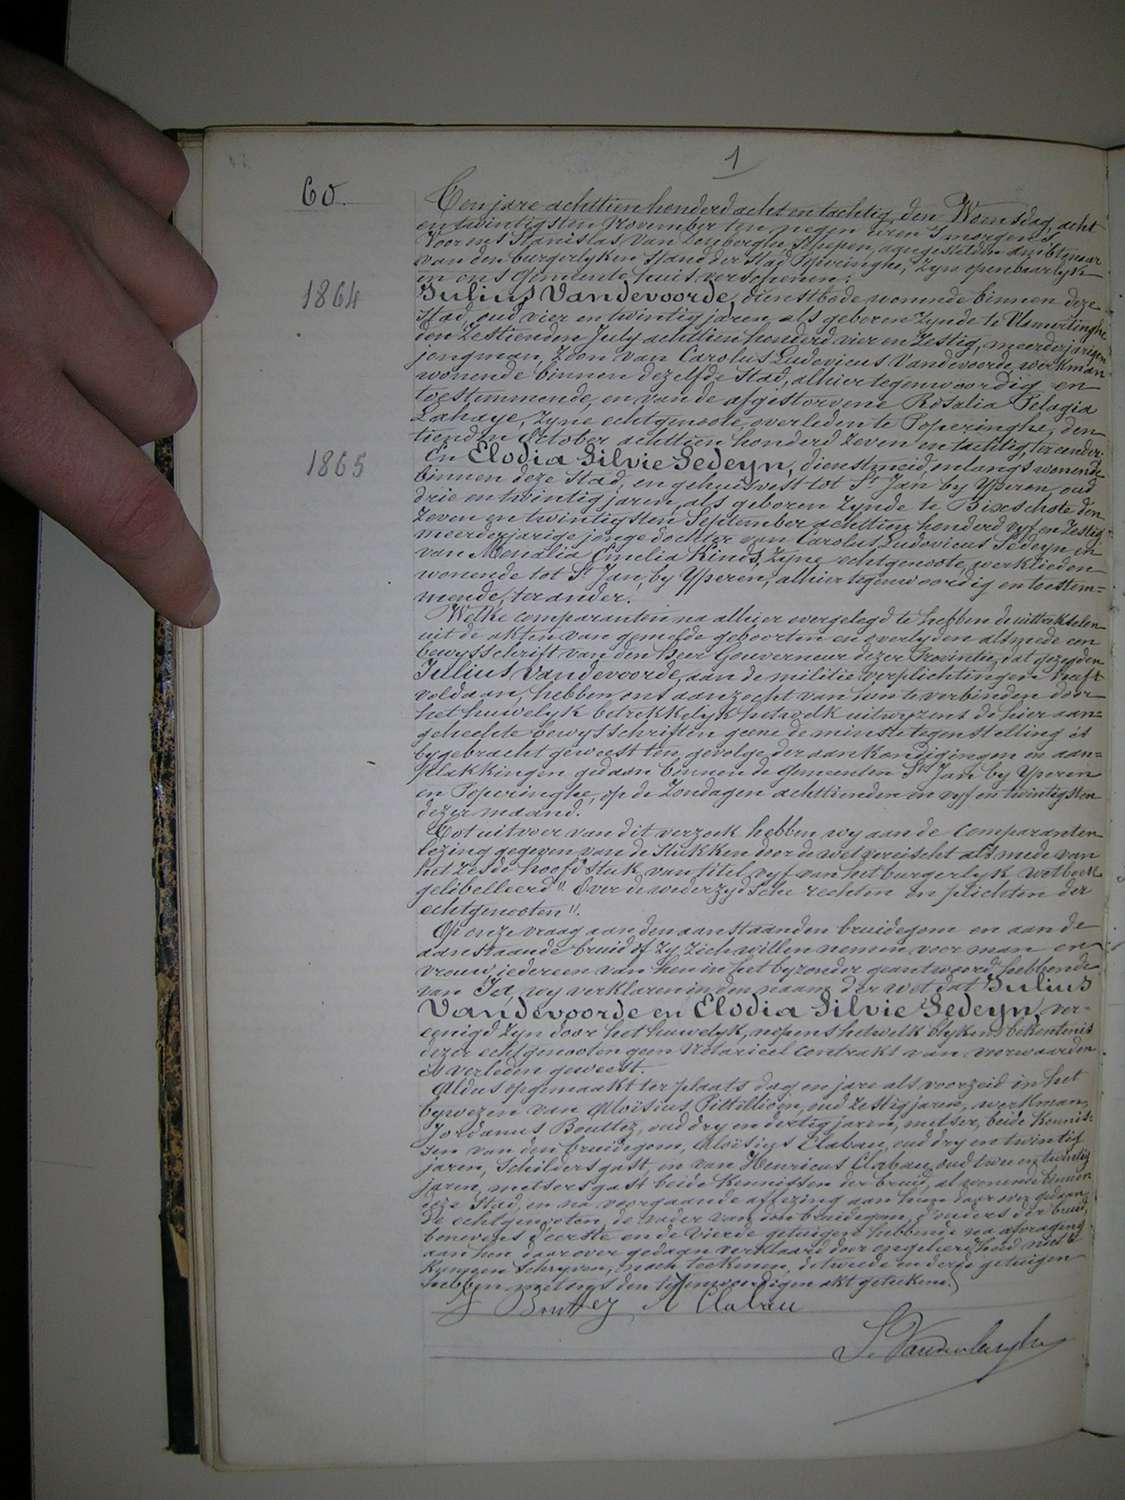 1
60.
Ten jare achttien honderd acht en tachtig, den Woensdag, acht
en twintigsten November ten negen uren 's morgens
Voor ons Stanislas Van Lenberghe, Schepen, aangestelden ambtenaar
van den burgerlyken stand der stad Poperinghe, zyn openbaarlyk
in ons Gemeente huis verschenen:
1864
Julius Vandevoorde, dienstbode wonende binnen deze
stad, oud vier en twintig jaren, als geboren zynde te Vlamertinghe
den zestienden July achttien honderd vier en zestig, meerderjarigen
jongman, zoon van Carolus Ludovicus Vandevoorde, werkman
wonende binnen dezelfde stad, alhier tegenwoordig en
toestemmende, en van de afgestorvene Rosalia Pelagia
Lahaye, zyne echtgenoote, overleden te Poperinghe, den
tienden October achttien honderd zeven en tachtig, ter eender
1865
En Elodia Silvie Sedeyn, dienstmeid, onlangs wonende
binnen deze stad, en gehuisvest tot St Jan by Yperen, oud
drie en twintig jaren, als geboren zynde te Bixschote den
zeven en twintigsten September achttien honderd vyf en zestig
meerderjarige jonge dochter van Carolus Ludovicus Sedeyn en
van Monalia Emelia Kinds, zyne echtgenoote, werklieden
wonende tot St Jan by Yperen, alhier tegenwoordig en toestem=
mende, ter ander.
Welke comparanten na alhier overgelegd te hebben de uittrekselen
uit de akten van gemelde geboorten en overlyden alsmede een
bewysschrift van den Heer Gouverneur dezer Provintie, dat gezegden
Julius Vandevoorde, aan de militie verplichtingen heeft
voldaan, hebben ons aanzocht van hun te verbinden door
het huwelyk betrekkelyk hetwelk uitwyzens de hier aan=
gehechte bewysschriften geene de minste tegenstelling is
bygebracht geweest ten gevolge der aankondigingen en aan=
plakkingen gedaan binnen de Gemeenten St Jan by Yperen
en Poperinghe, op de Zondagen achttienden en vyf en twintigsten
dezer maand.
Tot uitvoer van dit verzoek hebben wy aan de comparanten
lezing gegeven van de stukken door de wet vereischt als mede van
het zesde hoofdstuk van titel vyf van het burgerlyk wetboek
gelibelleerd "Over de wederzydsche rechten en plichten der
echtgenooten".
Op onze vraag aan den aanstaanden bruidegom en aan de
aanstaande bruid of zy zich willen nemen voor man en
vrouw, iedereen van hen in het byzonder geantwoord hebbende
van Ja, wy verklaren in den naam der wet dat Julius
Vandevoorde en Elodia Silvie Sedeyn, ver-
eenigd zyn door het huwelyk, nopens hetwelk blykens bekentenis
dezer echtgenooten geen Notarieel contrakt van voorwaarden
is verleden geweest.
Aldus opgemaakt ter plaats dag en jare als voorzeid in het
bywezen van Aloïsius Pittillioen, oud zestig jaren, werkman,
Jordanus Bouttez, oud dry en dertig jaren, metser, beide kennis=
sen van den bruidegom, Aloïsius Clabau, oud dry en twintig
jaren, schildersgast, en van Henricus Clabau, oud twee en twintig
jaren, metsersgast beide kennissen der bruid, al wonende binnen
deze stad, en na voorgaande aflezing aan hun daar van gedaan,
de echtgenooten, de vader van den bruidegom, d'ouders der bruid,
benevens d'eerste en de vierde getuigen hebbende na afvraging
aan hen daarover gedaan verklaard door ongeleerdheid niet te
kunnen schryven, noch teekenen, de tweede en derde getuigen
hebben met ons den tegenwoordigen akt geteekend.
J Bouttez A Clabau